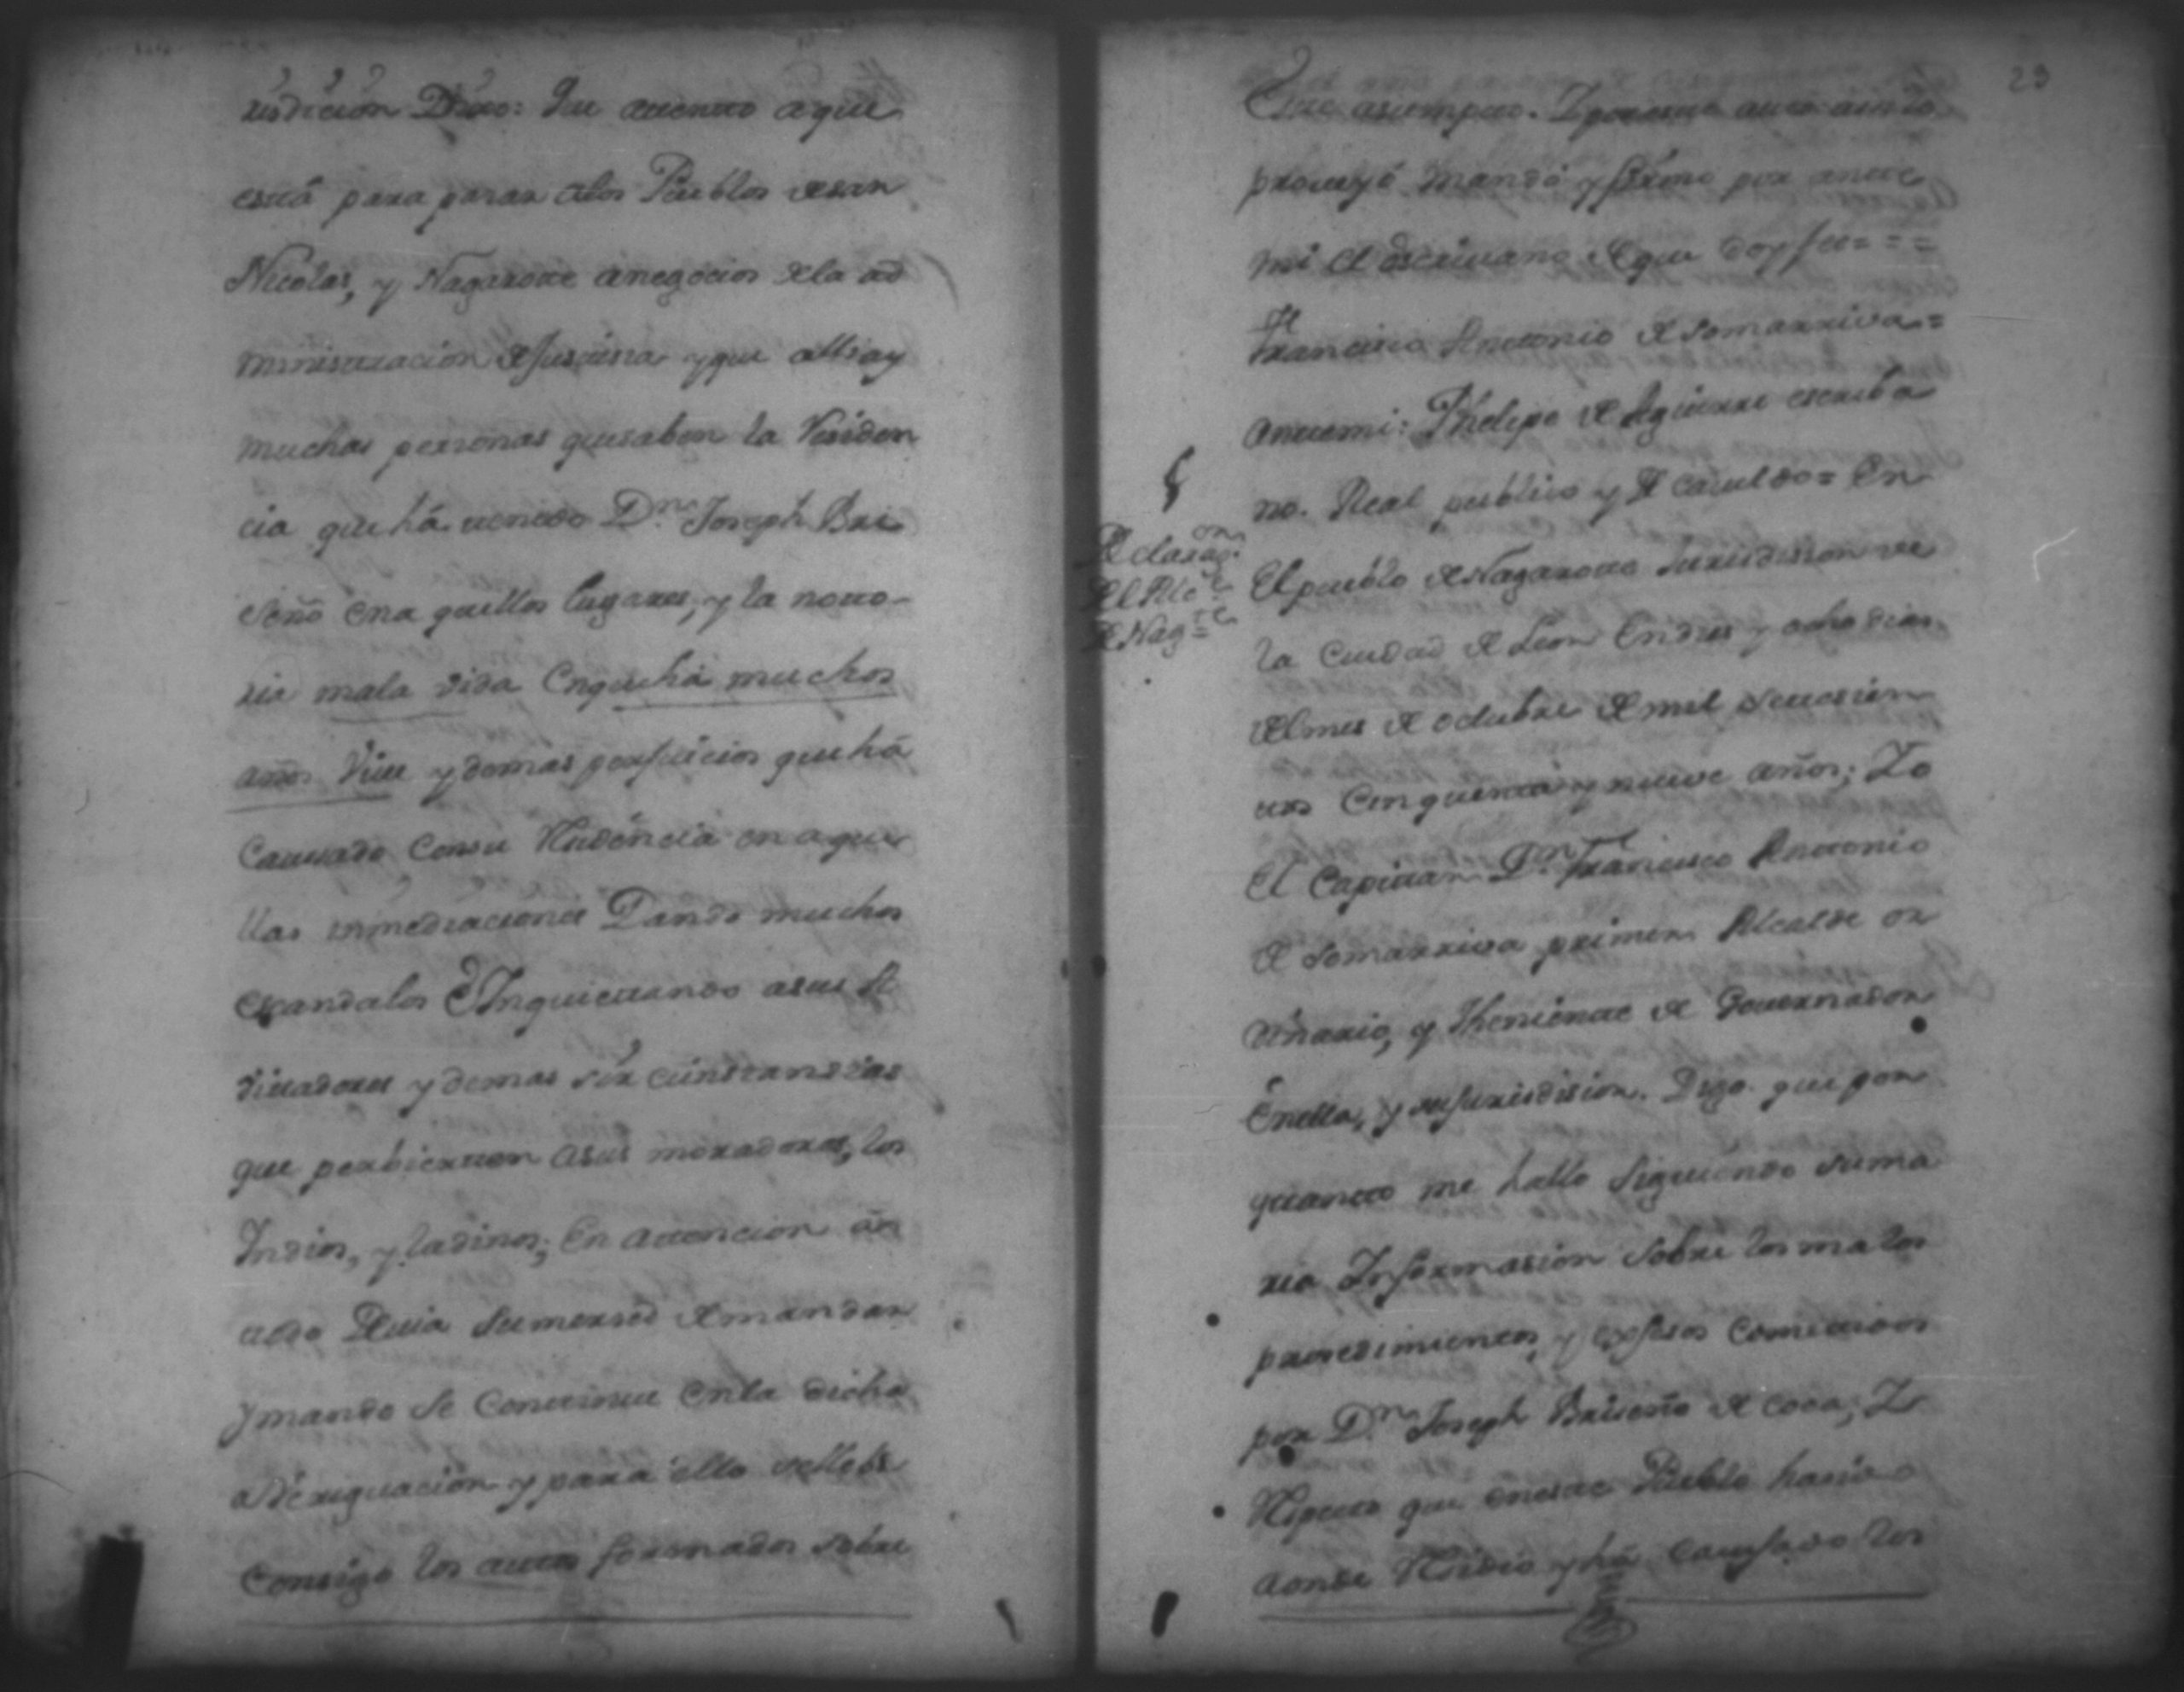 risdicion Dixo: Que attento a que
está para pasar alos Pueblos desan
Nicolas, y Nagarote anegocios dela ad
ministracion deJusticia yque alli ay
muchas personas quesaben la Residen
cia que há tenido D.n Joseph Bri
seño ena quellos lugares, y la noto-
ria mala vida Enquehá muchos
años vive y demas perjuicios quehá
Caussado Consu Residencia en aque
llas inmediaciones Dando muchos
escandalos É Inquiettando asus A
vitadores y demas sir cunstanscias
que perbierten asus moradores, los
Indios, y ladinos; En attencion ân
ttodo Devia Sumersed demandar
ymando Se Continue Enla dicha
aVeriguacion y para ello se lleve
Consigo los auttos formados sobre
23
Este asumpto. Y por este auto assi lo
proveyó mando y firmo por ante
mi el escrivano deque doy fee= = =
Francisco Antonio de Somarriva=
Antemi: Phelipe de Aguirre escriba
no. Real publico y de Cavildo= En
De claraz.on
del Alc.e
de Nag.te
El pueblo deNagarote Jurisdission de
la Ciudad de Leon Endies y ocho dias
delmes de octubre demil settesien
ttos Cinquenta y nueve años; Yo
El Capittan D.n Francisco Antonio
de Somarriva primer Alcalde or
dinario, y Theniente de Governador
Enella, y sujurisdision. Digo que por
quanto me hallo Siguiendo suma
ria Informasion Sobre los malos
procedimientos, y exsesos Comettidos
por D.n Joseph Briseño de Coca; Y
Respecto que eneste Pueblo hasia
donde Residio y há Caussado los